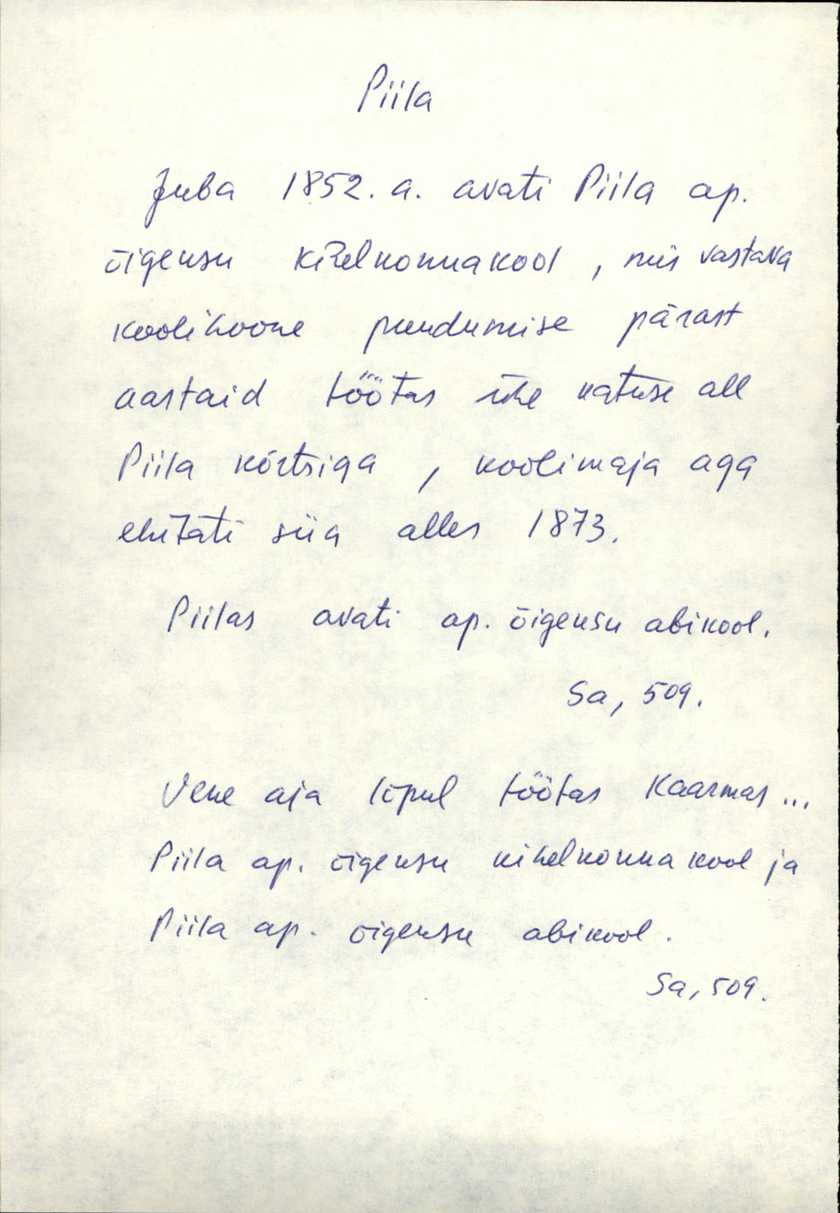 Piila
Juba 1852. a. avati Piila ap.
õigeusu kihelkonnakool, mis vastava
koolihoone puudumise pärast
aastaid töötas ühe katuse all
Piila kõrtsiga, koolimaja aga
ehitati siia alles 1873.
Piilas avati ap. õigeusu abikool.
Sa, 509.
Vene aja lõpul töötas Kaarmas...
Piila ap. õigeusu kihelkonnakool ja
Piila ap. õigeusu abikool.
Sa, 509.